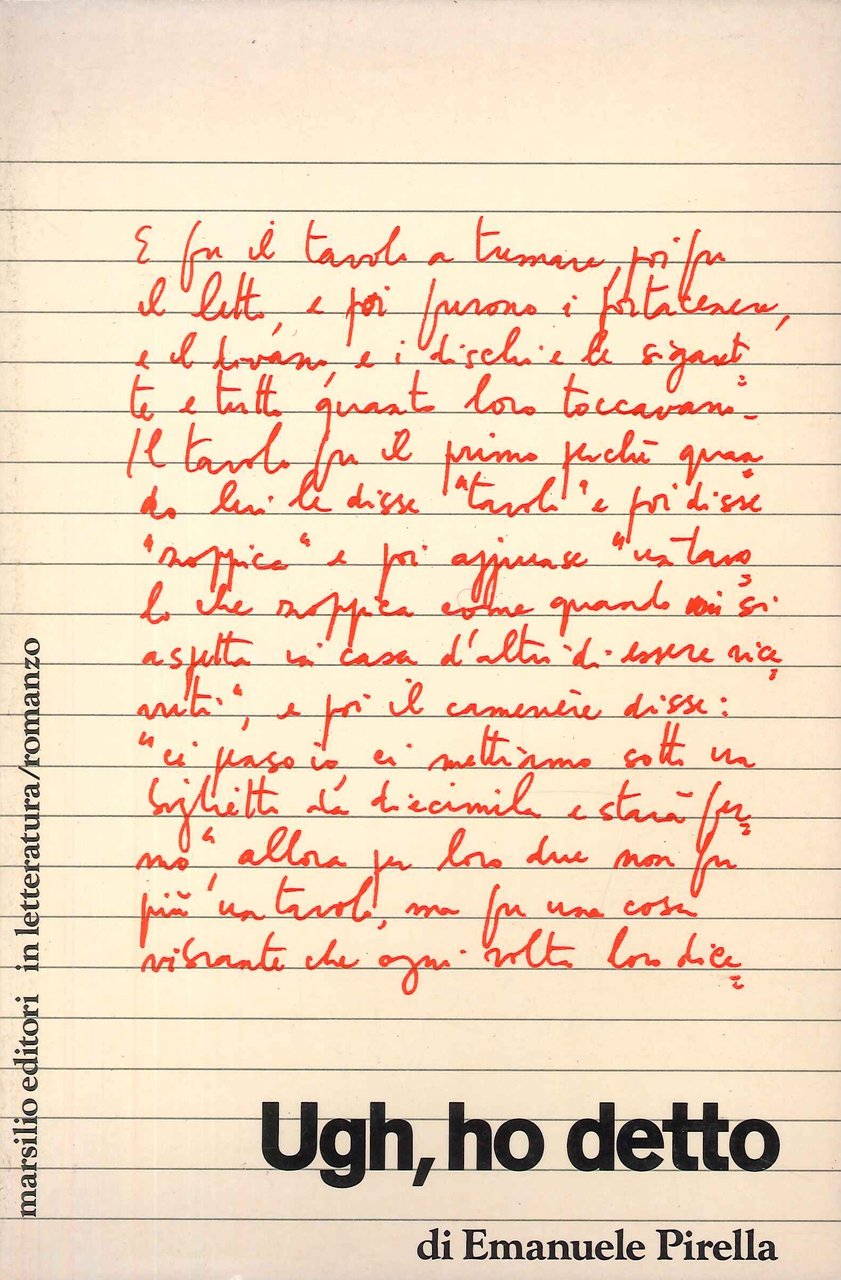 E fu il tavolo a tremare, poi fu
il letto, e poi furono i portacenere,
e il divano, e i dischi e le sigaret=
te e tutto quanto loro toccavano.
Il tavolo fu il primo perchè quan=
do lui le disse "tavolo" e poi disse
"zoppica" e poi aggiunse "un tavo=
lo che zoppica come quando si
aspetta in casa d'altri di essere rice=
vuti", e poi il cameriere disse:
"ci penso io, ci mettiamo sotto un
biglietto da diecimila e starà fer=
mo", allora per loro due non fu
più un tavolo, ma fu una cosa
vibrante che ogni volta loro dice=
Ugh, ho detto
di Emanuele Pirella
marsilio editori in letteratura/romanzo